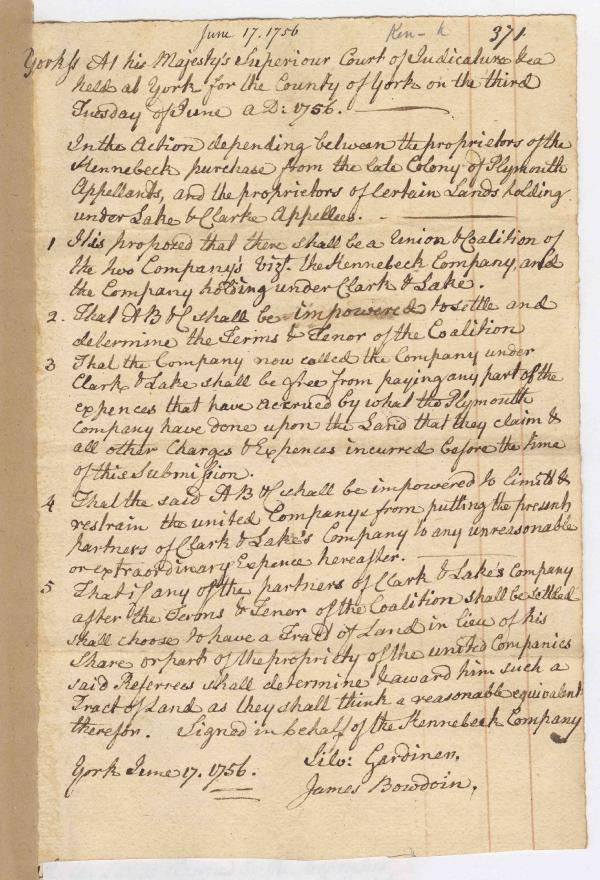 June 17. 1756
Ken- k
371
Yorkss At his Majesty's Superiour Court of Judicature &ca
held at York for the County of York on the third
Tuesday of June A D: 1756.
In the Action depending between the proprietors of the
Kennebeck purchase from the late Colony of Plymouth
Appellants, and the proprietors of Certain Lands holding
under Lake & Clarke Appellees.
1 It is proposed that there shall be a Union & Coalition of
the two Company's Vizt. the Kennebeck Company, and
the Company holding under Clark & Lake.
2. That A B & C shall be impowered to settle and
determine the Terms & Tenor of the Coalition
3 That the Company now called the Company under
Clark & Lake shall be free from paying any part of the
expences that have accrued by what the Plymouth
Company have done upon the Land that they claim &
all other Charges & Expences incurred before the time
of this Submission.
4 That the said A B & C shall be impowered to limitt &
restrain the united Companys from putting the present
partners of Clark & Lake's Company to any unreasonable
or extraordinary Expence hereafter.
5 That if any of the partners of Clark & Lake's Company
after the Terms & Tenor of the Coalition shall be settled
shall choose to have a Tract of Land in lieu of his
Share or part of the propriety of the united Companies
said Referrees shall determine & award him such a
Tract of Land as they shall think a reasonable equivalent
therefor. Signed in behalf of the Kennebeck Company
York June 17. 1756.
Silv: Gardiner.
James Bowdoin.